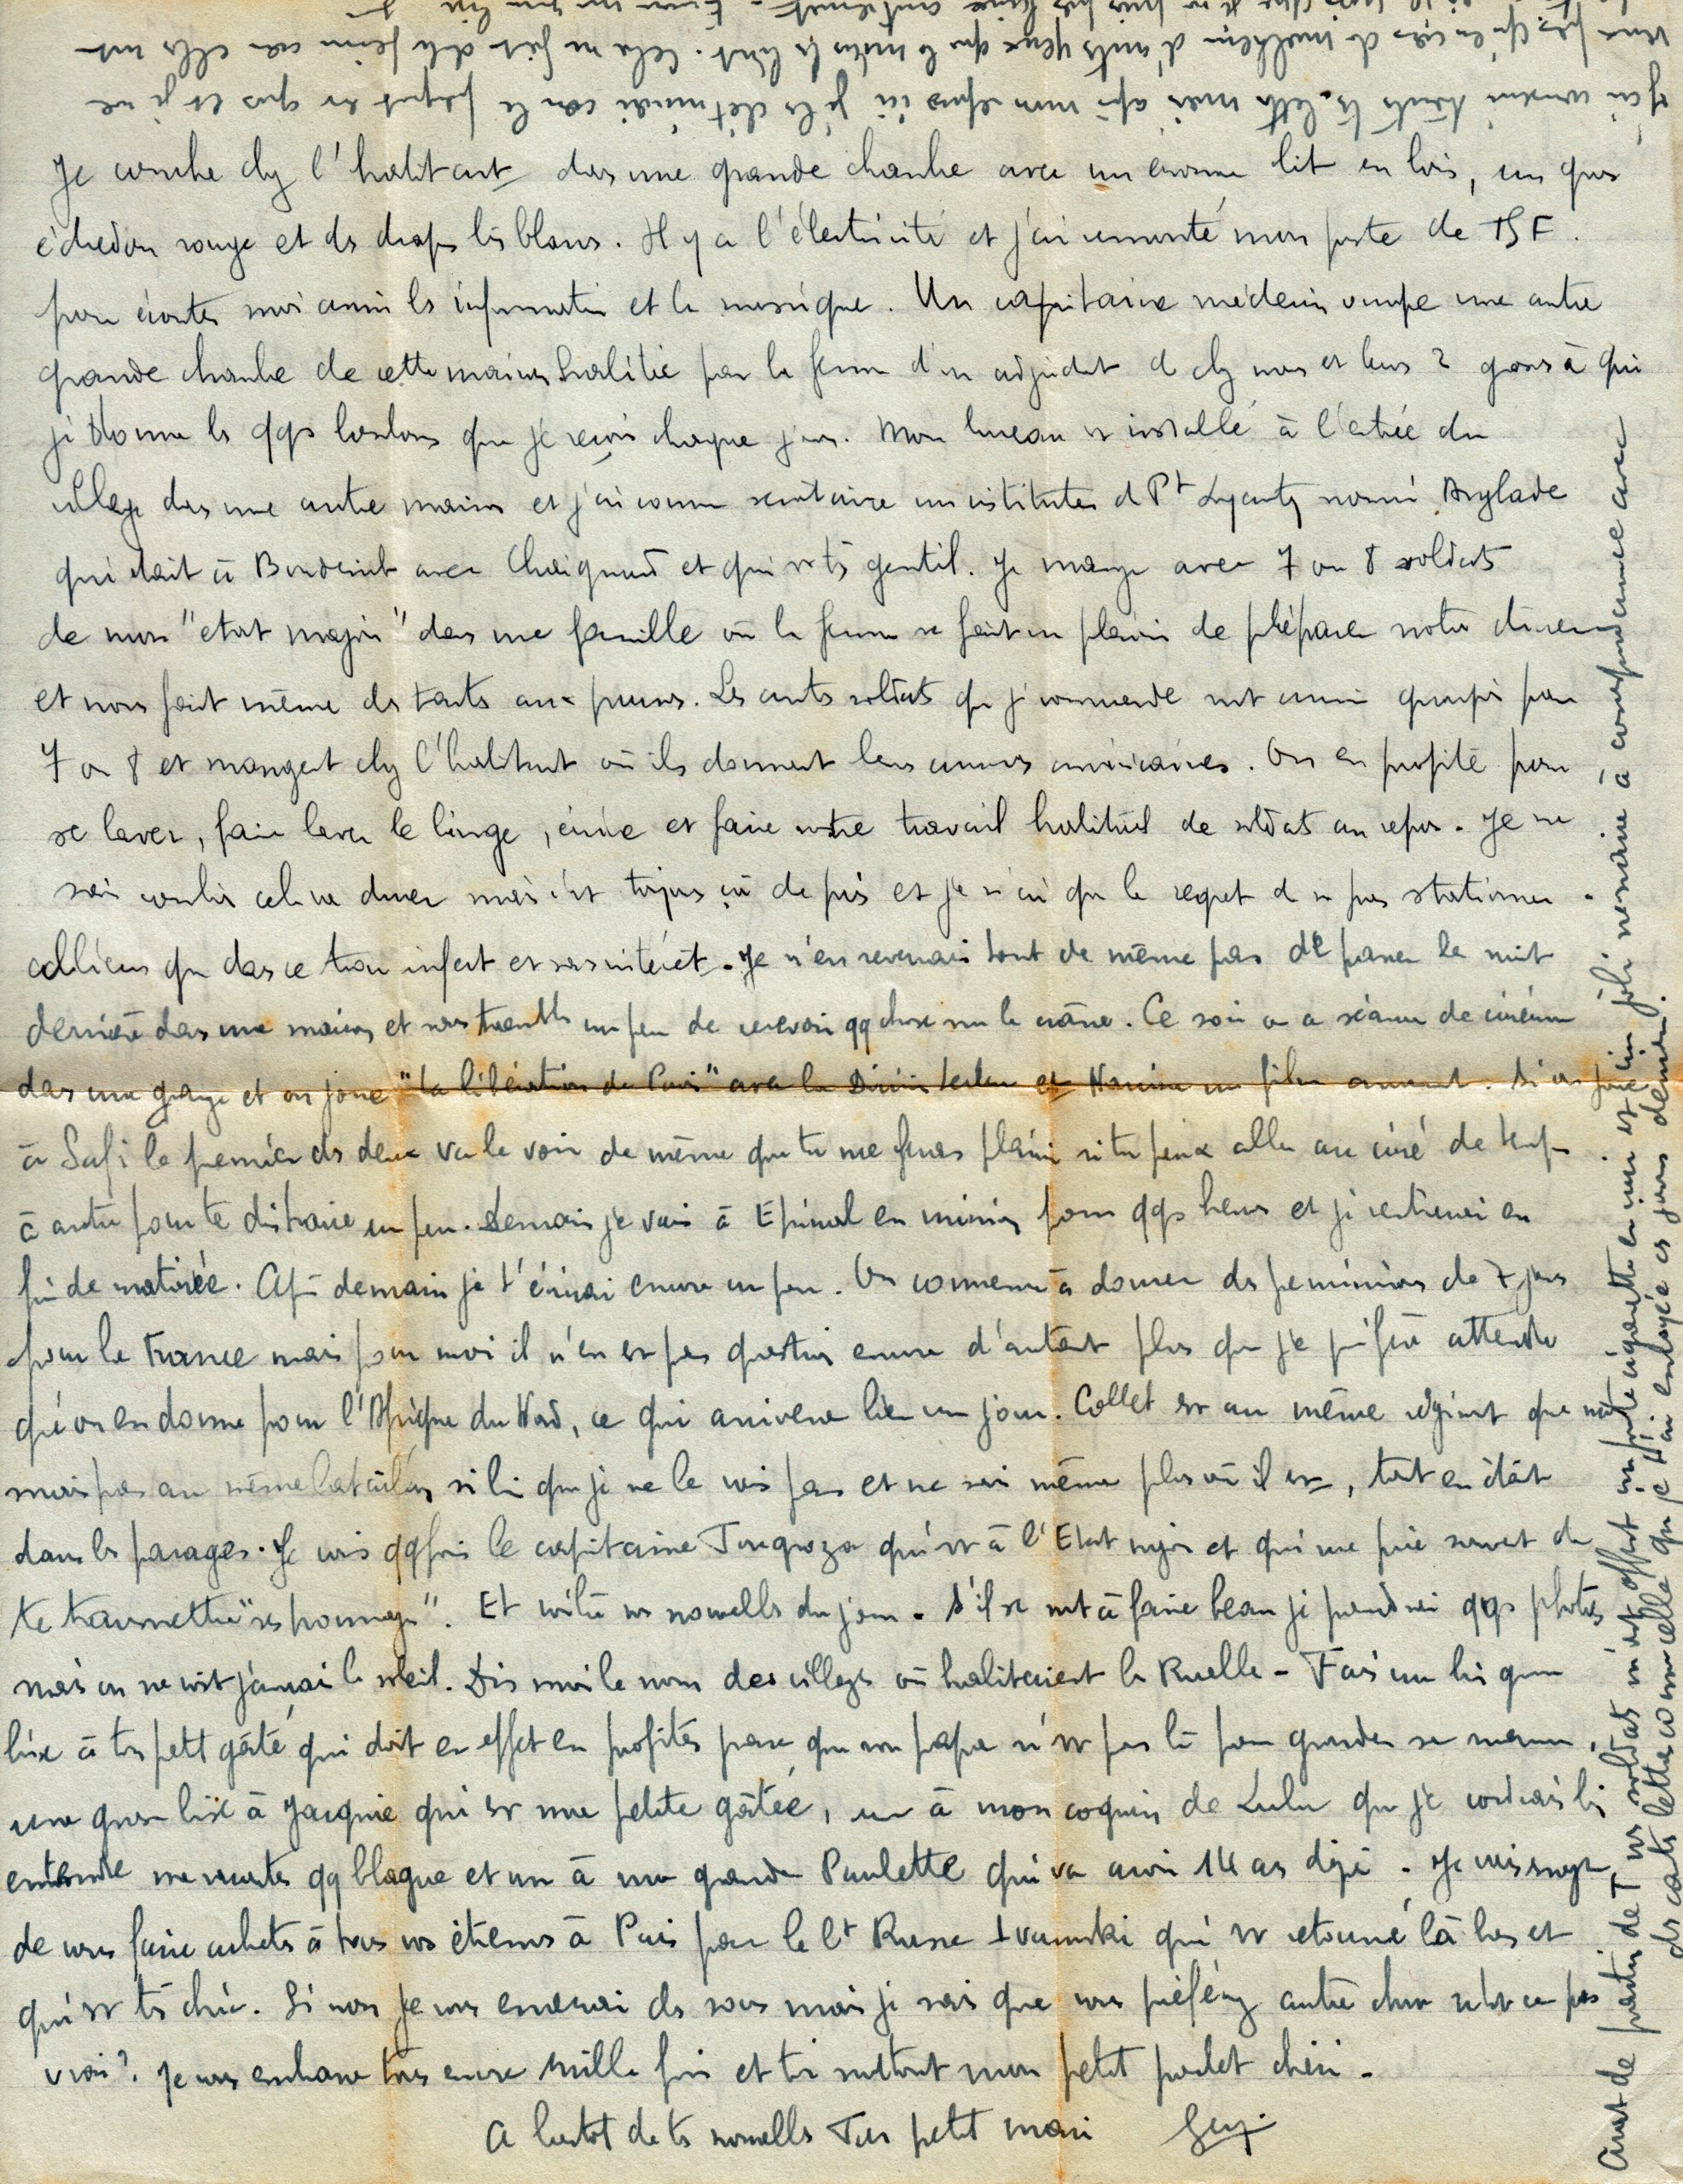 Je couche chez l'habitant dans une grande chambre avec un énorme lit en bois, un gros
édredon rouge et des draps bis blancs. Il y a l'électricité et j'ai remonté mon poste de TSF.
pour écouter moi aussi les informations et la musique. Un capitaine médecin occupe une autre
grande chambre de cette maison habitée par la femme d'un adjudant de chez nous et leurs 2 gosses à qui
je donne les qqs bonbons que je reçois chaque jour. Mon bureau est installé à l'entrée du
village dans une autre maison et j'ai comme secrétaire un instituteur de Pt Lyautey nommé Anglade
qui était à Boudenib avec Chaignaud et qui est très gentil. Je mange avec 7 ou 8 soldats
de mon "etat major" dans une famille où la femme se fait un plaisir de préparer notre dîner
et nous fait même des tartes aux prunes. Les autres soldats que je commande sont aussi groupés par
7 ou 8 et mangent chez l'habitant où ils donnent leurs conserves américaines. On en profite pour
se laver, faire laver le linge, écrire et faire notre travail habituel de soldats au repos. Je ne
sais combien cela va durer mais c'est toujours çà de pris et je n'ai que le regret de ne pas stationner
ailleurs que dans ce trou infect et sans intérêt. Je n'en revenais tout de même pas de passer la nuit
dernière dans une maison et sans trembler un peu de recevoir qq chose sur le crâne. Ce soir on a séance de cinéma
dans une grange et on joue "La libération de Paris" avec la Division Leclerc et un film amusant. Si on joue
à Safi le premier des deux va le voir de même que tu me feras plaisir si tu peux aller au ciné de temps
à autre pour te distraire un peu. Demain je vais à Epinal en mission pour qqs heures et je rentrerai en
fin de matinée. Après demain je t'écrirai encore un peu. On commence à donner des permissions de 7 jours
pour la France mais pour moi il n'en est pas question encore d'autant plus que je préfère attendre
qu'on en donne pour l'Afrique du Nord, ce qui arrivera bien un jour. Collet est au même régiment que moi
mais pas au même bataillon si bien que je ne le vois pas et ne sais même plus où il est, tout en étant
dans les parages. Je vois qqfois le capitaine qui est à l'Etat major et qui me prie souvent de
te transmettre "ses hommages". Et voilà nos nouvelles du jour. S'il se met à faire beau je prendrai qqs photos
mais on ne voit jamais le soleil. Dis moi le nom des villages où habitaient les Ruelle - Fais une bien grosse
bise à ton petit gâté qui doit en effet en profiter parce que son papa n'est pas là pour gronder sa maman,
une grosse bise à Jacquie qui est une petite gâtée, une à mon coquin de Lulu que je voudrais bien
entendre me raconter qq blague et une à ma grande Paulette qui va avoir 14 ans déjà. Je vais essayer
de vous faire acheter à tous vos étrennes à Paris par le Lt Russe qui est retourné là bas et
qui est très chic. Si non je vous enverrai des sous mais je sais que vous préférez autre chose n'est ce pas
vrai? Je vous embrasse tous encore mille fois et toi surtout mon petit poulet chéri.
A bientôt de tes nouvelles Ton petit mari Guy
Avant de partir de T nos soldats m'ont offert un porte cigarette en cuir et un joli nécessaire à correspondance avec
des cartes lettres comme celle que je t'ai envoyée ces jours derniers.